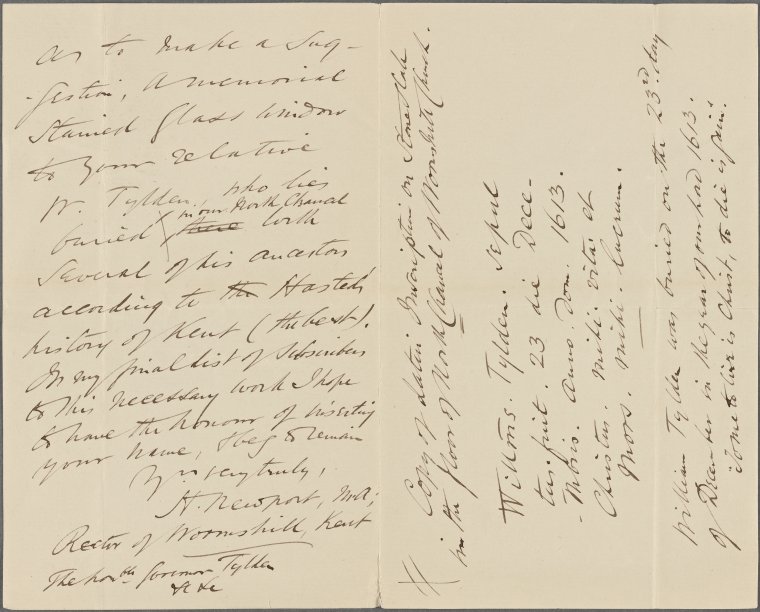 as to make a Sug-
-gestion, A memorial
Stained Glass window
to your relative
W. Tylden, who lies
in our North Chancel
buried there with
Several of his ancestors
according to the Hasted's
history of Kent (the best).
In my final list of Subscribers
to this necessary work I hope
to have the honour of inserting
your name, I beg to remain
Yrs very truly,
H. Newport, M.A.;
Rector of Wormshill, Kent
The Honble Governor Tylden
&c &c
Copy of Latin Inscription on Stone Slab
in the floor of North Chancel of Wormshill Church.
Willms. Tylden. Sepul
tus. fuit. 23 die Dece-
-mbris. Anno. Dom. 1613.
Christus. Mihi. vita. et
Mors. Mihi. Lucrum.
William Tylden was buried on the 23rd day
of December in the year of our Lord 1613.
To me to live is Christ, to die is gain.